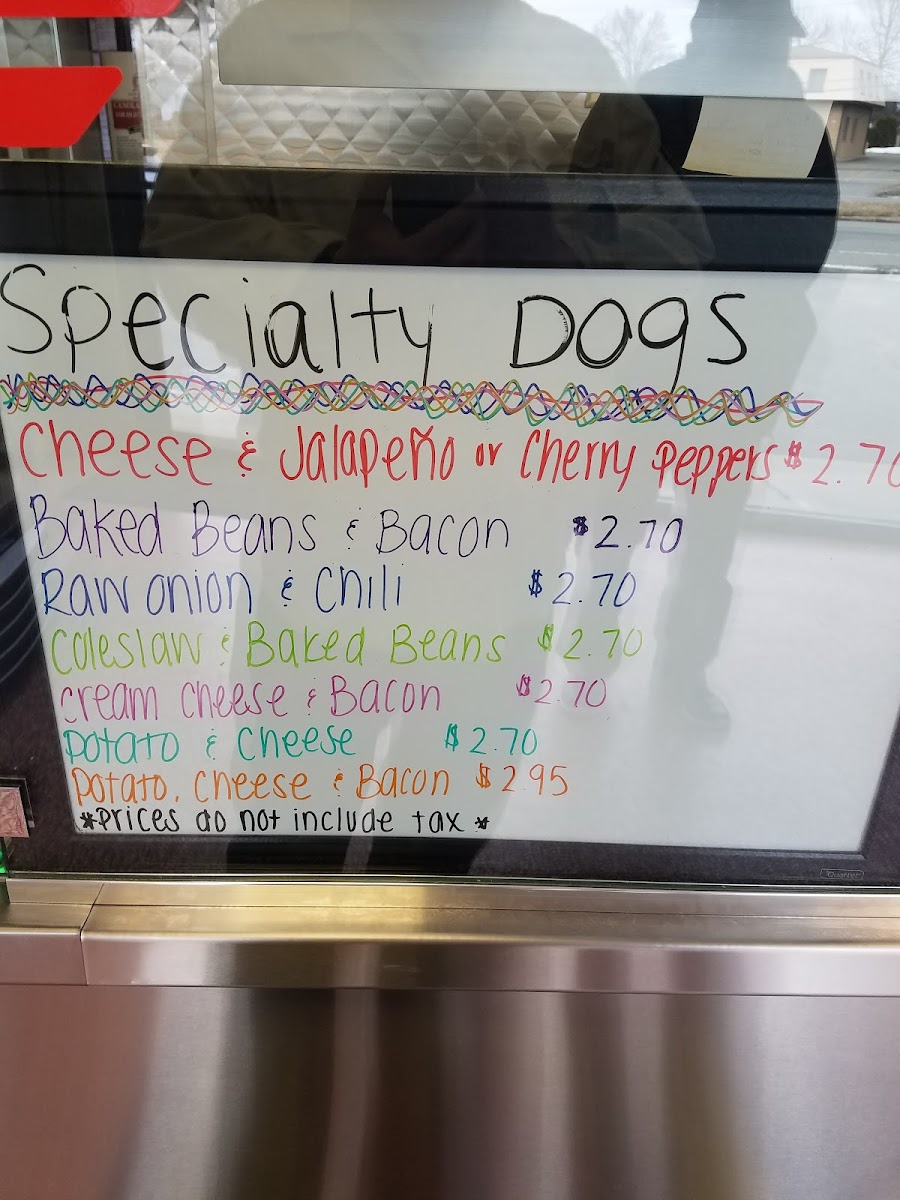 Specialty Dogs
Cheese & Jalapeño or Cherry Peppers $2.70
Baked Beans & Bacon $2.70
Raw onion & Chili $2.70
Coleslaw & Baked Beans $2.70
cream cheese & Bacon $2.70
potato & Cheese $2.70
potato, cheese & Bacon $2.95
*prices do not include tax*
Quartet